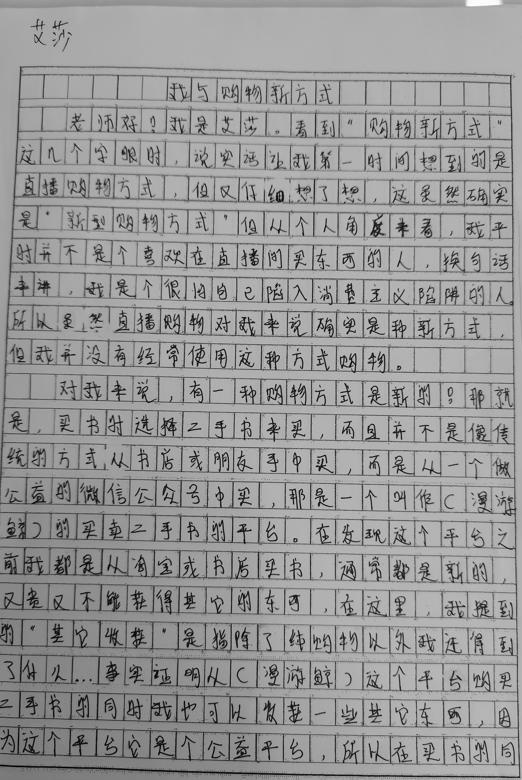 艾莎
我与购物新方式
老师好！我是艾莎。看到“购物新方式”
这几个字眼时，说实话让我第一时间想到的是
直播购物方式，但又仔细想了想，这虽然确实
是“新型购物方式”但从个人角度来看，我平
时并不是个喜欢在直播间买东西的人，换句话
来讲，我是个很怕自己陷入消费主义陷阱的人。
所以虽然直播购物对我来说确实是种新方式，
但我并没有经常使用这种方式购物。
对我来说，有一种购物方式是新的！那就
是，买书时选择二手书来买，而且并不是像传
统的方式从书店或朋友手中买，而是从一个做
公益的微信公众号中买，那是一个叫作（漫游
鲸）的买卖二手书的平台。在发现这个平台之
前我都是从淘宝或书店买书，通常都是新的，
又贵又不能获得其它的东西，在这里，我提到
的“其它收获”是指除了纯购物以外我还得到
了什么...事实证明从（漫游鲸）这个平台购买
二手书的同时我也可以收获一些其它东西，因
为这个平台它是个公益平台，所以在买书的同